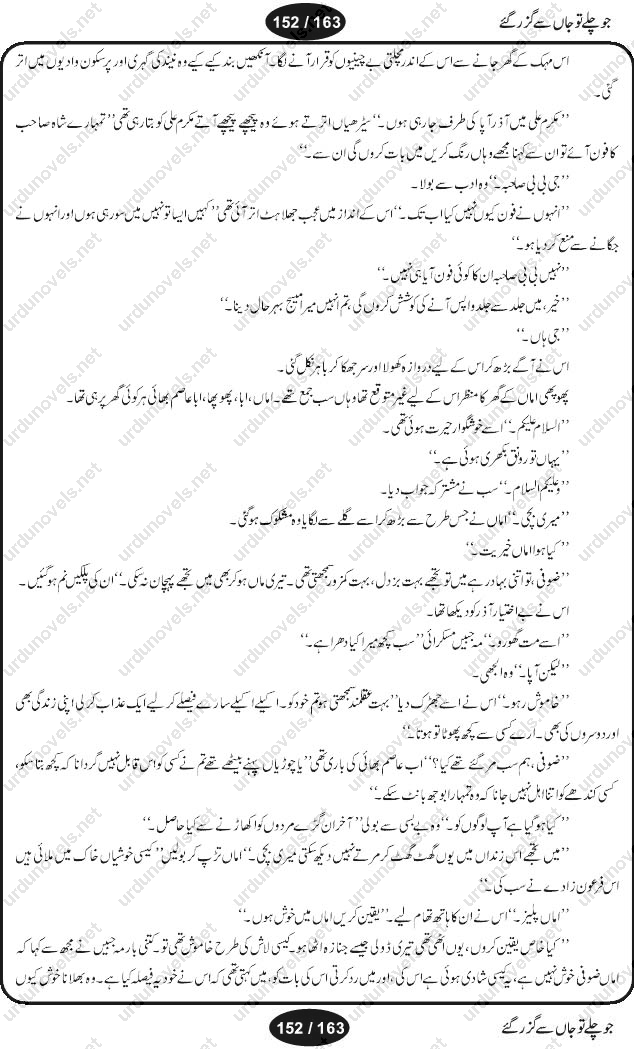 جو چلے تو جاں سے گزر گئے
152 / 163
اس مہک کے گھر جانے سے اس کے اندر مچلتی بے چینیوں کو قرار آنے لگا۔ آنکھیں بند کیے کیے وہ نیند کی گہری اور پرسکون وادیوں میں اتر
گئی۔
’’مکرم علی میں آذر آپا کی طرف جا رہی ہوں۔‘‘ سیڑھیاں اترتے ہوئے وہ پیچھے پیچھے آتے مکرم علی کو بتا رہی تھی’’ تمہارے شاہ صاحب
کا فون آئے تو ان سے کہنا مجھے وہاں رنگ کریں میں بات کروں گی ان سے۔‘‘
’’جی بی بی صاحبہ۔‘‘ وہ ادب سے بولا۔
’’انہوں نے فون کیوں نہیں کیا اب تک۔‘‘ اس کے انداز میں عجب جھلاہٹ اتر آئی تھی’’ کہیں ایسا تو نہیں میں سو رہی ہوں اور انہوں نے
جگانے سے منع کر دیا ہو۔‘‘
’’نہیں بی بی صاحبہ ان کا کوئی فون آیا ہی نہیں۔‘‘
’’خیر، میں جلد سے جلد واپس آنے کی کوشش کروں گی، تم انہیں میرا میسج بہر حال دینا۔‘‘
’’جی ہاں۔‘‘
اس نے آگے بڑھ کر اس کے لیے دروازہ کھولا اور سر جھکا کر باہر نکل گئی۔
پھوپھی اماں کے گھر کا منظر اس کے لیے غیر متوقع تھا وہاں سب جمع تھے۔ اماں، ابا، پھوپھا، ابا عاصم بھائی ہر کوئی گھر پر ہی تھا۔
’’السلام علیکم۔‘‘ اسے خوشگوار حیرت ہوئی تھی۔
’’یہاں تو رونق بکھری ہوئی ہے۔‘‘
’’وعلیکم السلام۔‘‘ سب نے مشترکہ جواب دیا۔
’’میری بچی۔‘‘ اماں نے جس طرح سے بڑھ کر اسے گلے سے لگایا وہ مشکوک ہو گئی۔
’’کیا ہوا اماں خیریت۔‘‘
’’صوفی، تو اتنی بہادر ہے میں تو تجھے بہت بزدل، بہت کمزور سمجھتی تھی۔ تیری ماں ہو کر بھی میں تجھے پہچان نہ سکی۔‘‘ ان کی پلکیں نم ہو گئیں۔
اس نے بے اختیار آذر کو دیکھا تھا۔
’’اسے مت گھورو۔‘‘ مہ جبیں مسکرائی’’ سب کچھ میرا کیا دھرا ہے۔‘‘
’’لیکن آپا۔‘‘ وہ الجھی۔
’’خاموش رہو۔‘‘ اس نے اسے جھڑک دیا’’ بہت عقلمند سمجھتی ہو تم خود کو۔ اکیلے اکیلے سارے فیصلے کر لیے ایک عذاب کر لی اپنی زندگی بھی
اور دوسروں کی بھی۔ ارے کسی سے کچھ پھوٹا تو ہوتا۔‘‘
’’صوفی، ہم سب مر گئے تھے کیا؟‘‘ اب عاصم بھائی کی باری تھی’’ یا چوڑیاں پہنے بیٹھے تھے تم نے کسی کو اس قابل نہیں گردانا کہ کچھ بتا سکو،
کسی کندھے کو اتنا اہل نہیں جانا کہ وہ تمہارا بوجھ بانٹ سکے۔‘‘
’’کیا ہو گیا ہے آپ لوگوں کو۔‘‘ وہ بے بسی سے بولی’’ آخر ان گڑے مردوں کو اکھاڑنے سے کیا حاصل۔‘‘
’’میں تجھے اس زنداں میں یوں گھٹ گھٹ کر مرتے نہیں دیکھ سکتی میری بچی۔‘‘ اماں تڑپ کر بولیں’’ کیسی خوشیاں خاک میں ملائی ہیں
اس فرعون زادے نے سب کی۔‘‘
’’اماں پلیز۔‘‘ اس نے ان کا ہاتھ تھام لیے۔’’ یقین کریں اماں میں خوش ہوں۔‘‘
’’کیا خاص یقین کروں، یوں اٹھی تھی تیری ڈولی جیسے جنازہ اٹھا ہو۔ کیسی لاش کی طرح خاموش تھی تو۔ کتنی بار مہ جبیں نے مجھ سے کہا کہ
اماں صوفی خوش نہیں ہے، یہ کیسی شادی ہوئی ہے اس کی، اور میں رد کرتی اس کی بات کو، میں کہتی تھی کہ اس نے خود یہ فیصلہ کیا ہے۔ وہ بھلا نا خوش کیوں
جو چلے تو جاں سے گزر گئے
152 / 163
urdunovels.net